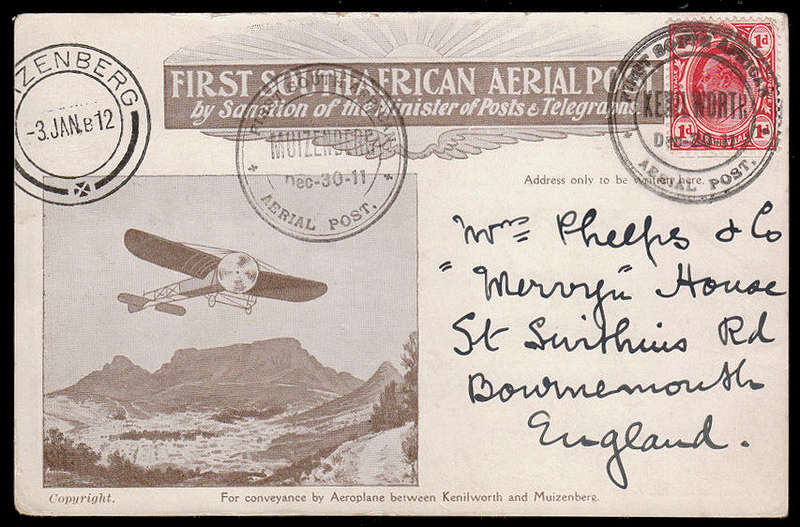 FIRST SOUTH AFRICAN AERIAL POST
by Sanction of the Minister of Posts & Telegraphs
IZENBERG
-3.JAN.B12
FIRST SOUTH AFRICAN
MUIZENBERG
Dec-30-11
AERIAL POST.
1d 1d
1d 1d
FIRST SOUTH AFRICAN
KENILWORTH
AERIAL POST.
Address only to be written here.
Mrs Phelps & Co
"Mervyn" House
St Swithins Rd
Bournemouth
England.
Copyright.
For conveyance by Aeroplane between Kenilworth and Muizenberg.